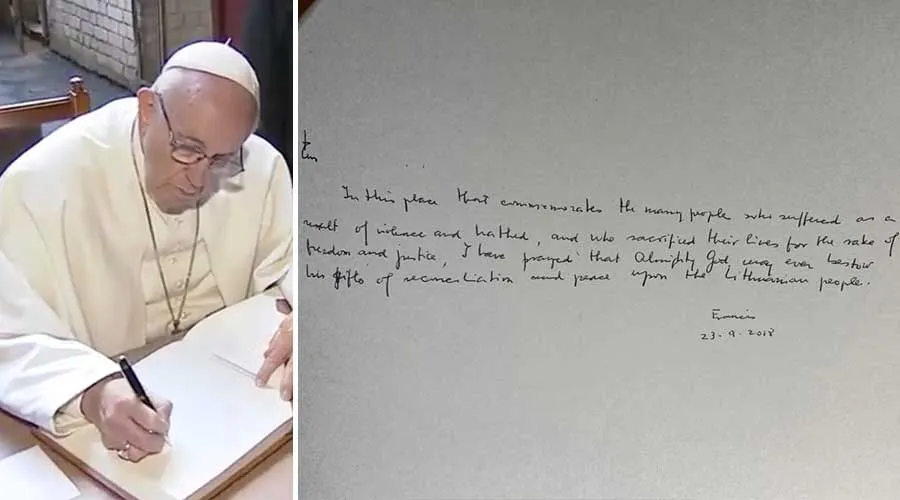 In this place that commemorates the many people who suffered as a
result of violence and hatred, and who sacrificed their lives for the sake of
freedom and justice, I have prayed that Almighty God may ever bestow
his gifts of reconciliation and peace upon the Lithuanian people.
Francis
23-9-2018